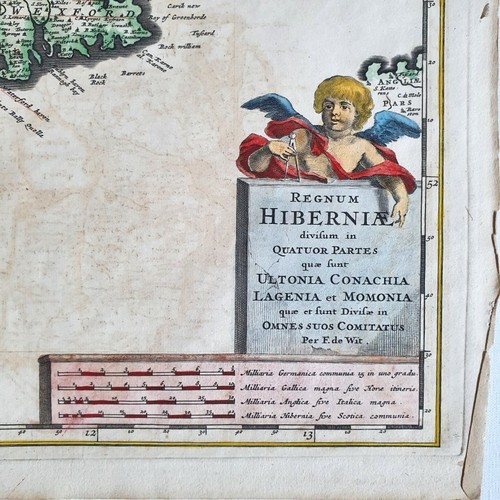 EXFORD
Carik new
Bay of Greenbords
Tuskard
Rock william
Black
Rock
Barrets
ANGLIÆ
PARS
52
50
REGNUM
HIBERNIÆ
divisum in
QUATUOR PARTES
quæ sunt
ULTONIA CONACHIA
LAGENIA et MOMONIA
quæ et sunt Divisæ in
OMNES SUOS COMITATUS
Per F. de Wit.
Milliaria Germanica communia 15 in uno gradu.
Milliaria Gallica magna sive Horæ itineris.
Milliaria Anglica sive Italica magna.
Milliaria Hibernia sive Scotica communia.
12
13